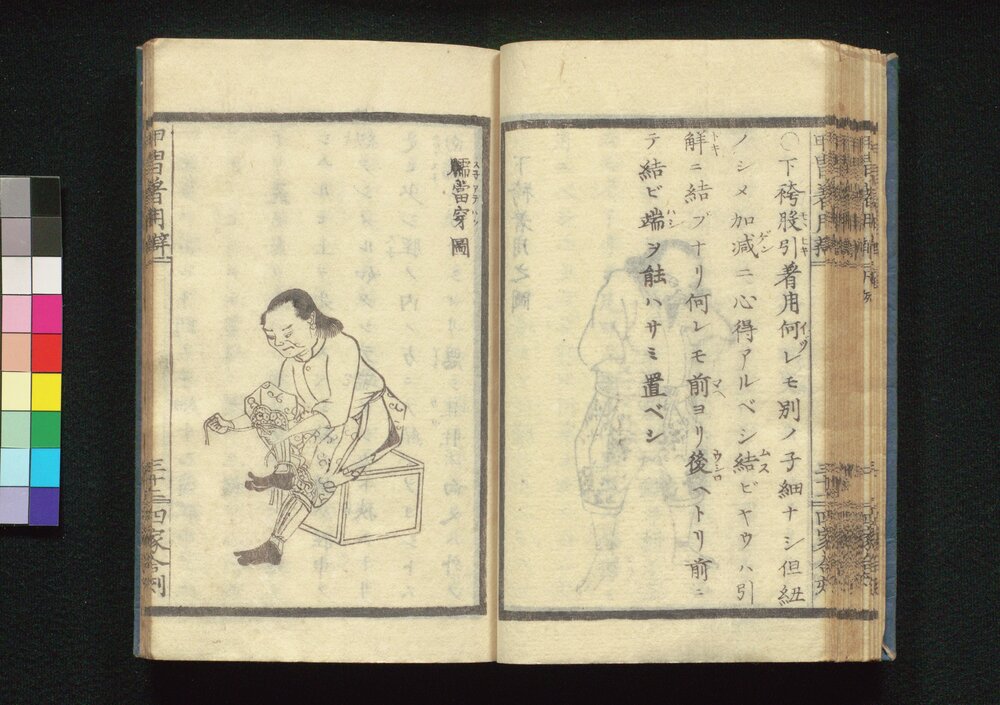 〇下袴股引着用何レモ別ノ子細ナシ但紐
ノシメ加减ニ心得アルベシ結ビヤウハ引
解ニ結ブナリ何レモ前ヨリ後ヘトリ前ニ
テ結ビ端ヲ能ハサミ置ベシ
臑當穿圖
甲冑着用辨
三十二
四家合刻